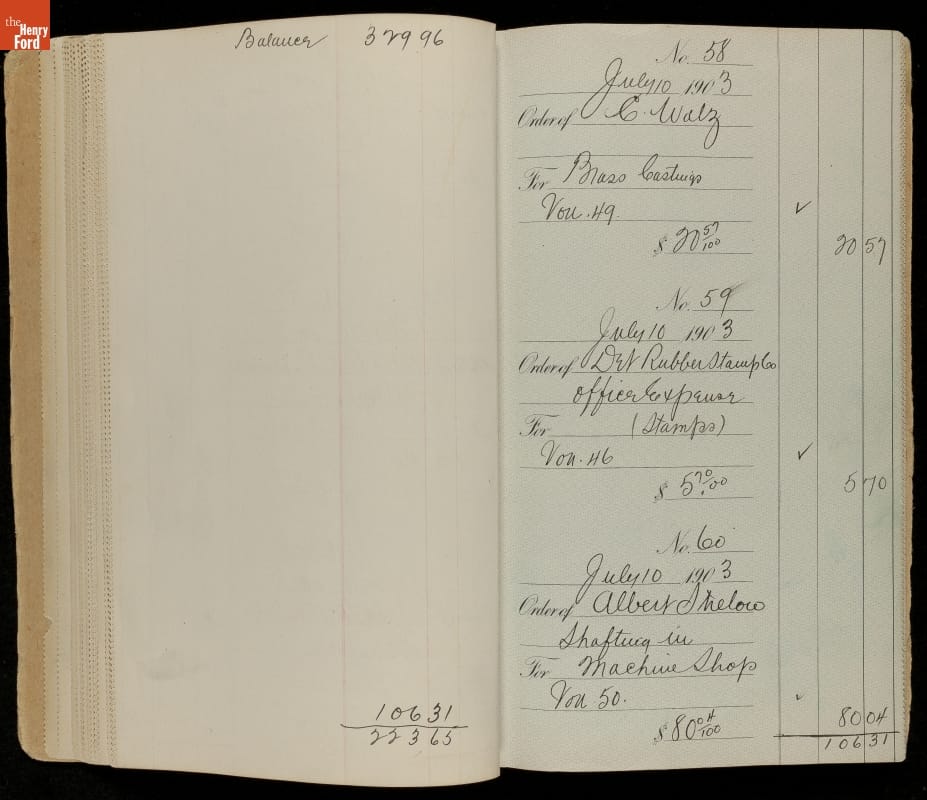 the
Henry
Ford
Balance 329 96
106 31
223 65
No. 58
July 10 1903
Order of C. Walz
For Brass Castings
Vou. 49. ✓
$ 20 57/100 20 57
No. 59
July 10 1903
Order of Det Rubber Stamp Co
Office Expense
For (Stamps)
Vou. 46 ✓
$ 5 70/00 5 70
No. 60
July 10 1903
Order of Albert Strelow
Shafting in
For Machine Shop
Vou 50. ✓
$ 80 04/100 80 04
106 31